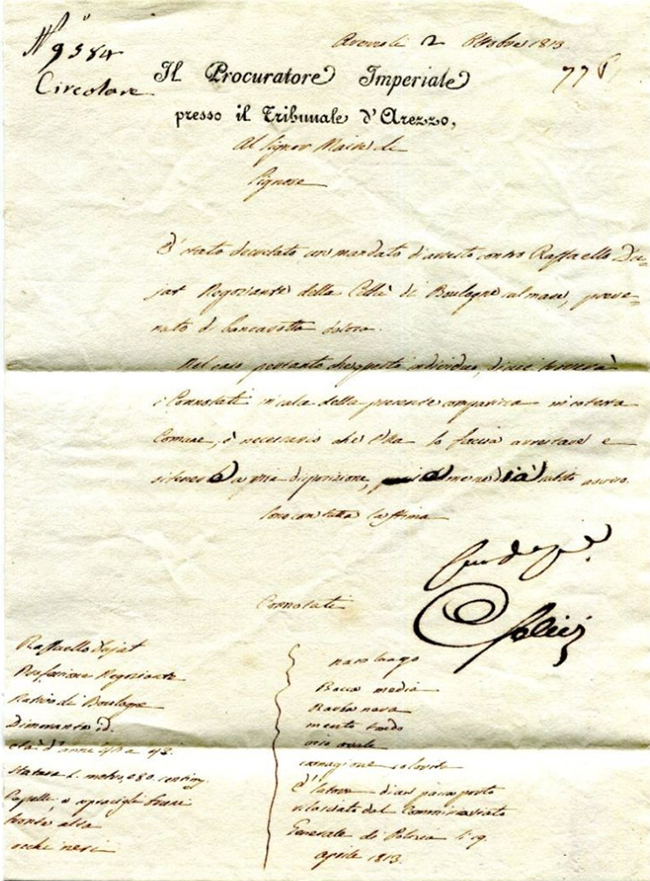 N° 9584
Circolare
Arezzo li 2 Ottobre 1813
Il Procuratore Imperiale
presso il Tribunale d'Arezzo,
Al Signor Maire di
Signore
E' stato decretato un mandato d'arresto contro Raffaello Du-
jat Negoziante della Città di Boulogne sul mare, preve-
nuto di bancarotta dolosa.
Nel caso pertanto che questo individuo, di cui troverà
i Connotati in cala della presente comparisca in cotesta
Comune, è necessario che Ella lo faccia arrestare e
ritenere a mia disposizione, e me ne dia subito avviso.
Sono con tutta la stima
Connotati
Raffaello Dujat
Professione Negoziante
Nativo di Boulogne
Dimorante id.
età d'anni 40 a 43.
Statura 1. metro, e 80 centim
Capelli e sopracigli bruni
fronte alta
occhi neri
naso lungo
Bocca media
Barba nera
mento tondo
viso ovale
carnagione colorita
E' latore di un passaporto
rilasciato dal Commissariato
Generale di Polizia li 19.
aprile 1813.